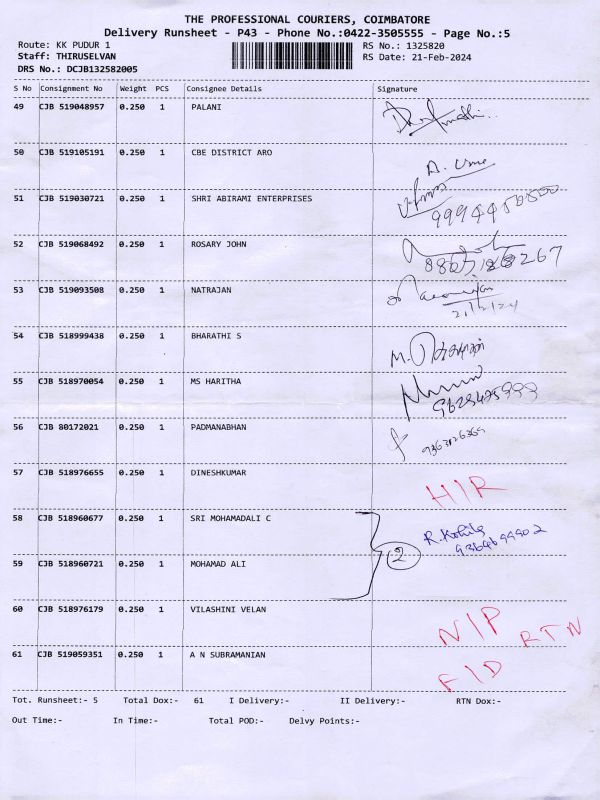 THE PROFESSIONAL COURIERS, COIMBATORE
Delivery Runsheet - P43 - Phone No.:0422-3505555 - Page No.:5
Route: KK PUDUR 1 RS No.: 1325820
Staff: THIRUSELVAN RS Date: 21-Feb-2024
DRS No.: DCJB132582005
S No Consignment No Weight PCS Consignee Details Signature
49 CJB 519048957 0.250 1 PALANI
50 CJB 519105191 0.250 1 CBE DISTRICT ARO
A. Uma
51 CJB 519030721 0.250 1 SHRI ABIRAMI ENTERPRISES
52 CJB 519068492 0.250 1 ROSARY JOHN
53 CJB 519093508 0.250 1 NATRAJAN
21/2/24
54 CJB 518999438 0.250 1 BHARATHI S
M.
55 CJB 518970054 0.250 1 MS HARITHA
56 CJB 80172021 0.250 1 PADMANABHAN
57 CJB 518976655 0.250 1 DINESHKUMAR
H/R
58 CJB 518960677 0.250 1 SRI MOHAMADALI C
R. Kokila
2
59 CJB 518960721 0.250 1 MOHAMAD ALI
60 CJB 518976179 0.250 1 VILASHINI VELAN
N/P RTN
61 CJB 519059351 0.250 1 A N SUBRAMANIAN
F/D
Tot. Runsheet:- 5 Total Dox:- 61 I Delivery:- II Delivery:- RTN Dox:-
Out Time:- In Time:- Total POD:- Delvy Points:-